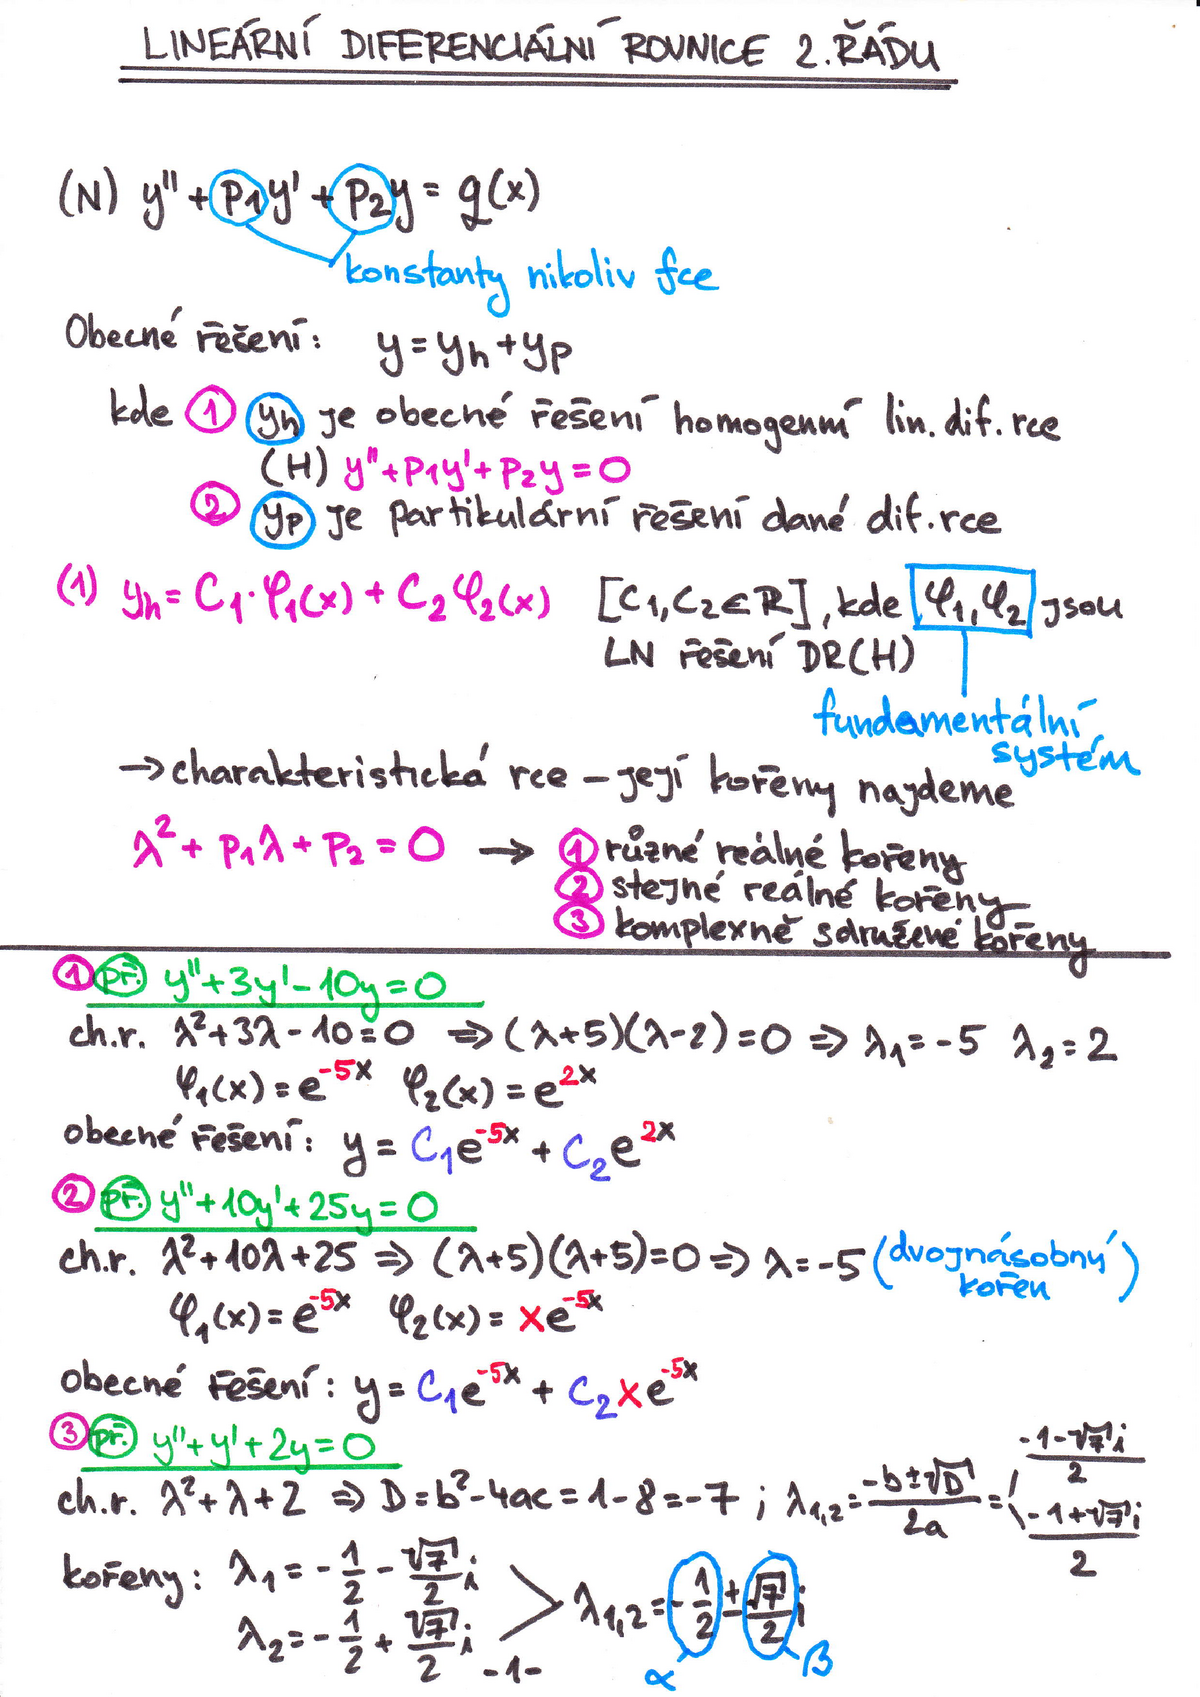 LINEÁRNÍ DIFERENCIÁLNÍ ROVNICE 2. ŘÁDU
(N) y'' + p₁y' + p₂y = q(x)
konstanty nikoliv fce
Obecné řešení: y = yₕ + yₚ
kde ① yₕ je obecné řešení homogenní lin. dif. rce
(H) y'' + p₁y' + p₂y = 0
② yₚ je partikulární řešení dané dif. rce
(1) yₕ = C₁·φ₁(x) + C₂φ₂(x) [C₁,C₂∈R], kde φ₁,φ₂ jsou
LN řešení DR(H)
fundamentální
systém
→ charakteristická rce – její kořeny najdeme
λ² + p₁λ + p₂ = 0 → ① různé reálné kořeny
② stejné reálné kořeny
③ komplexně sdružené kořeny
① př. y'' + 3y' – 10y = 0
ch.r. λ² + 3λ – 10 = 0 ⇒ (λ+5)(λ–2) = 0 ⇒ λ₁ = –5 λ₂ = 2
φ₁(x) = e^{-5x} φ₂(x) = e^{2x}
obecné řešení: y = C₁e^{-5x} + C₂e^{2x}
② př. y'' + 10y' + 25y = 0
ch.r. λ² + 10λ + 25 ⇒ (λ+5)(λ+5) = 0 ⇒ λ = –5 (dvojnásobný
kořen)
φ₁(x) = e^{-5x} φ₂(x) = xe^{-5x}
obecné řešení: y = C₁e^{-5x} + C₂xe^{-5x}
③ př. y'' + y' + 2y = 0
ch.r. λ² + λ + 2 ⇒ D = b² – 4ac = 1 – 8 = –7 ; λ₁,₂ = (–b ± √D)/2a = (–1–√7i)/2
(–1+√7i)/2
kořeny: λ₁ = –1/2 – √7/2 i
λ₂ = –1/2 + √7/2 i
λ₁,₂ = –1/2 ± √7/2 i
α β
-1-